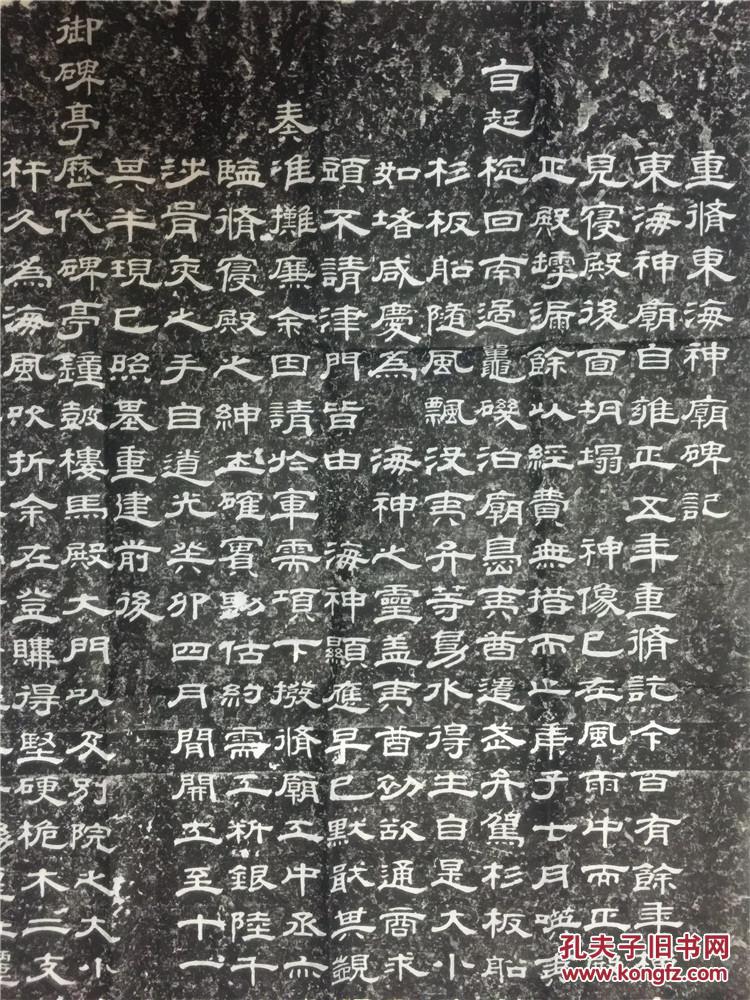 重脩東海神廟碑記
東海神廟自雍正五年重脩訖今百有餘年
見寑殿後面坍塌 神像已在風雨中而正
正殿罅漏餘以經費無措而止庚子七月𠸄夷
白起椗回南過鼉磯泊廟島夷酋遣武弁駕杉板船
杉板船隨風飄没夷弁等鳧水得生自是大小
如堵咸慶為 海神之靈盖夷酋初欲通商求
頭不請津門皆由 海神顯應早已默戢其覬
奏准攤廉余因請於軍需項下撥脩廟工中丞亦
臨脩寑殿之紳士確實勘估約需工料銀陸千
涉胥吏之手自道光癸卯四月間開工至十一
具半現已照墓重建前後
御碑亭歷代碑亭鐘鼓樓馬殿大門以及別院之大小
杆久為海風吹折余在登購得堅硬桅木二支
孔夫子旧书网
www.kongfz.com